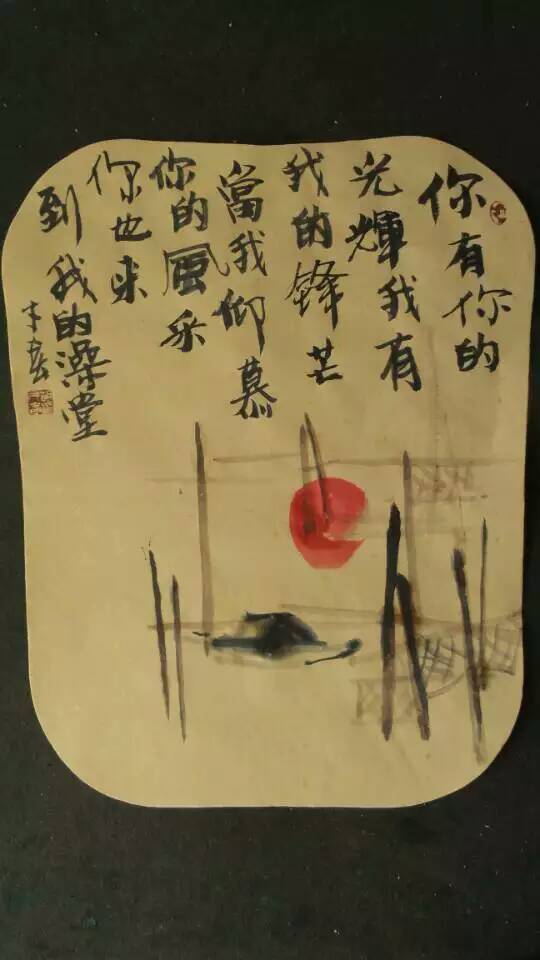 你有你的
光輝我有
我的鋒芒
當我仰慕
你的風采
你也来
到我的澡堂